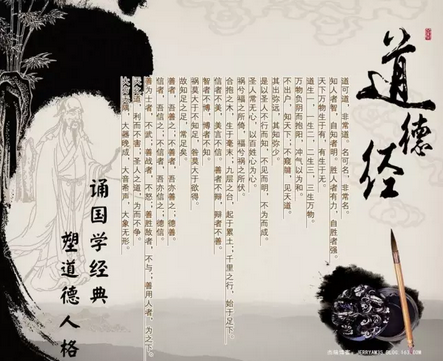 道德经
道可道，非常道。名可名，非常名。
知人者智，自知者明。胜人者有力，自胜者强。
天下万物生于有，有生于无。
道生一，一生二，二生三，三生万物。
万物负阴而抱阳，冲气以为和。
不出户，知天下；不窥牖，见天道。
其出弥远，其知弥少。
是以圣人不行而知，不见而明，不为而成。
圣人常无心，以百姓心为心。
祸兮福之所倚，福兮祸之所伏。
合抱之木，生于毫末；九层之台，起于累土；千里之行，始于足下。
信者不美，美言不信。善者不辩，辩者不善。
智者不博，博者不知。
祸莫大于不知足，咎莫大于欲得。
故知足之足，常足矣。
善者，吾善之；不善者，吾亦善之；德善。
信者，吾信之；不信者，吾亦信之；德信。
善为士者，不武；善战者，不怒；善胜敌者，不与；善用人者，为之下。
道，利而不害，圣人之道，为而不争。
大器晚成，大音希声，大象无形。
诵国学经典
塑道德人格